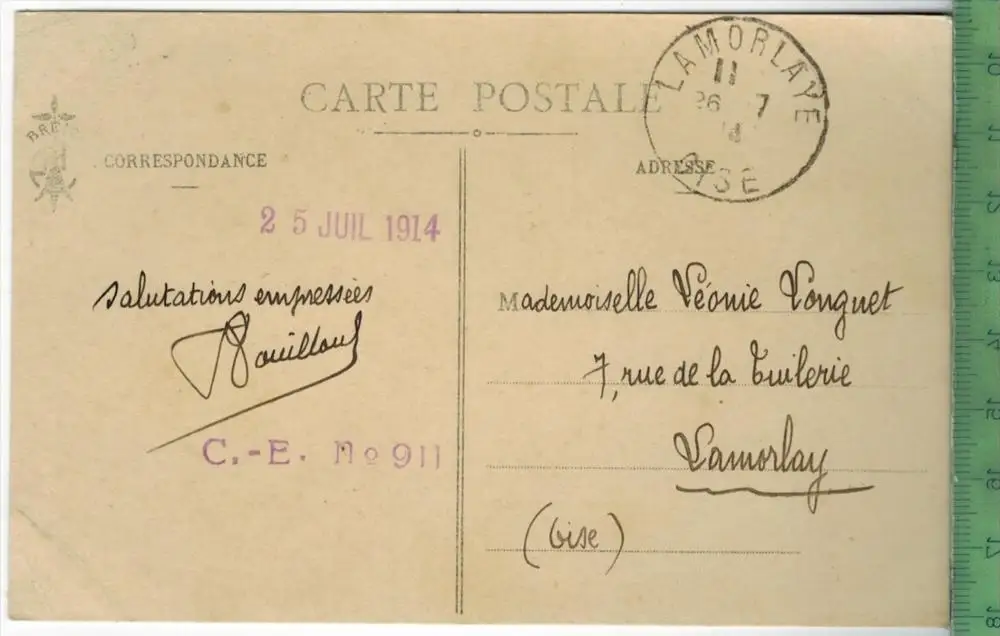 CARTE POSTALE
LAMORLAYE
11
26 7
14
OISE
CORRESPONDANCE
ADRESSE
25 JUIL 1914
salutations empressées
Bouilloud
C.-E. No 911
Mademoiselle Léonie Longuet
7, rue de la Tuilerie
Lamorlay
(Oise)